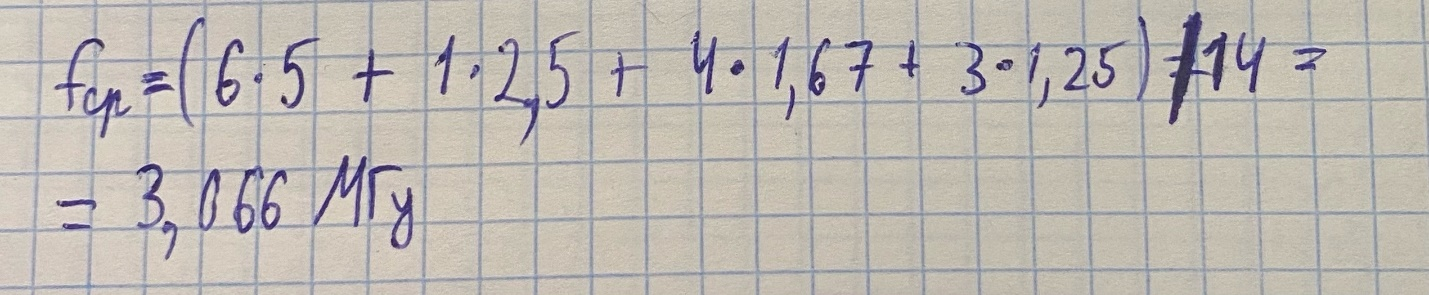 fср = (6·5 + 1·2,5 + 4·1,67 + 3·1,25) / 14 =
= 3,066 МГц